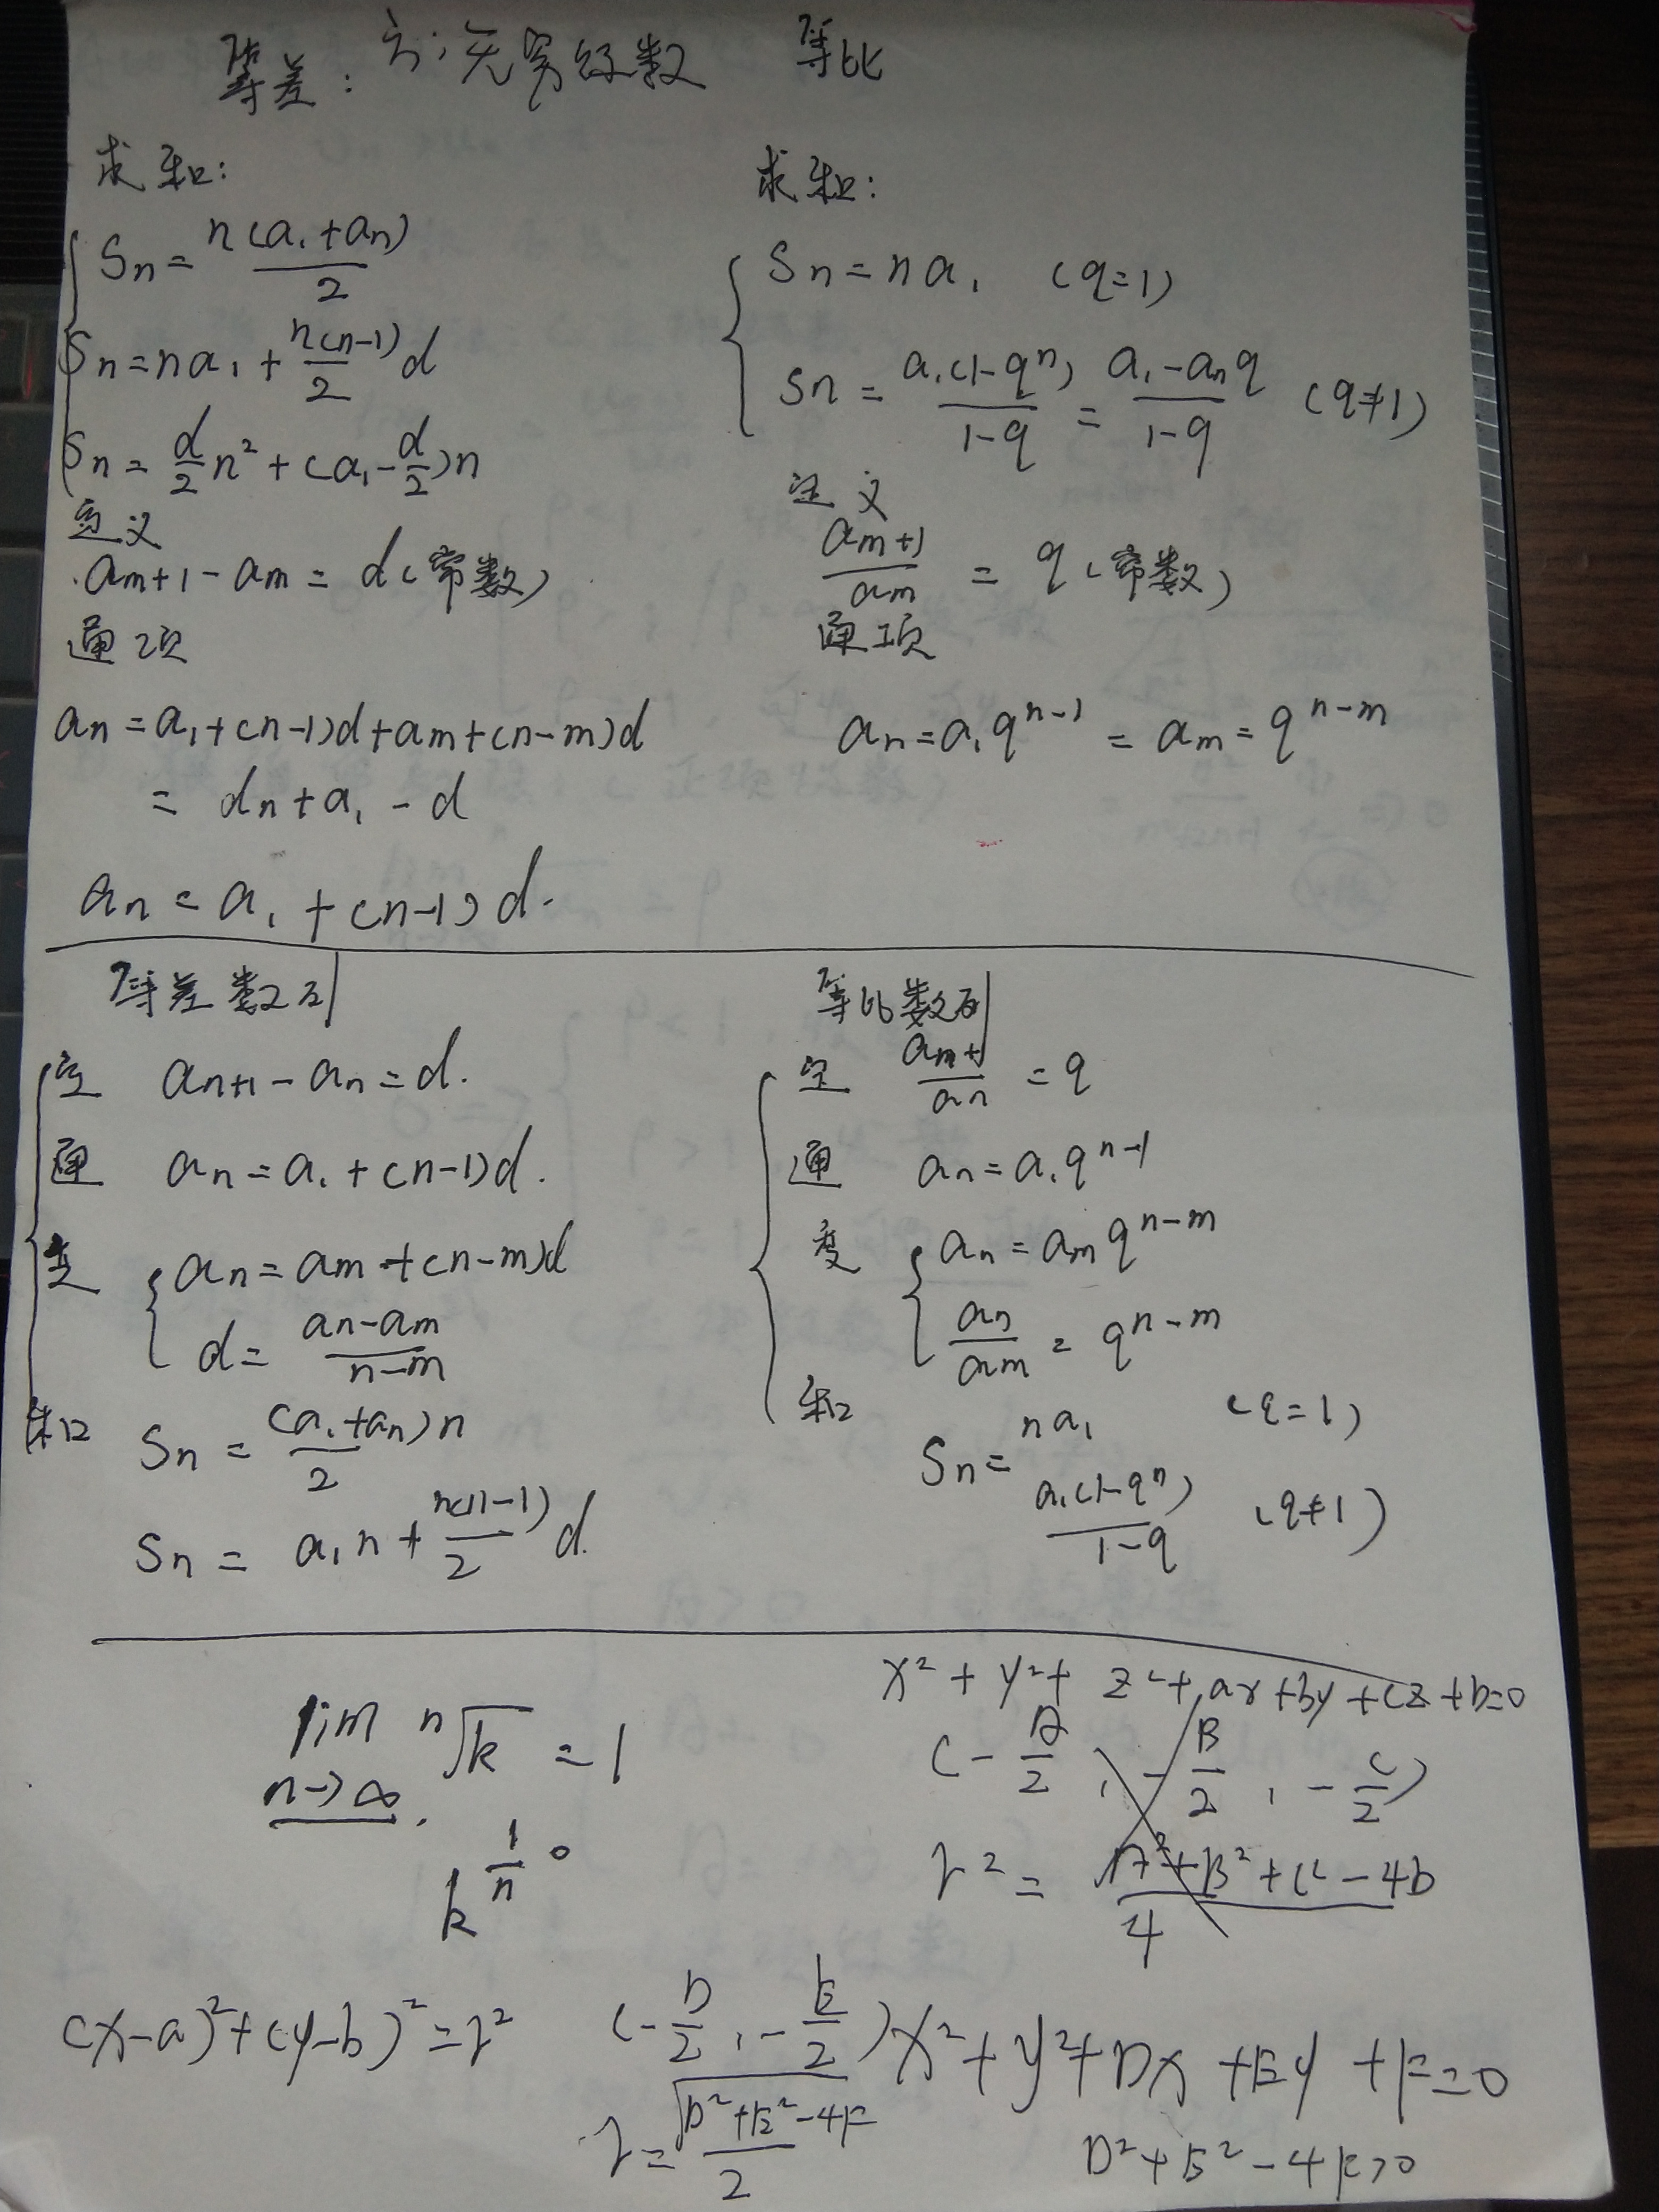 等差: 六:无穷级数 等比
求和:
Sn = n(a₁+an)/2
Sn = na₁ + n(n-1)/2 d
Sn = d/2 n² + (a₁ - d/2)n
定义
am+1 - am = d(常数)
通项
an = a₁+(n-1)d+am+(n-m)d
= dn + a₁ - d
an = a₁ + (n-1)d.
求和:
Sn = na₁ (q=1)
Sn = a₁(1-qⁿ)/1-q = a₁-anq/1-q (q≠1)
定义
am+1/am = q(常数)
通项
an = a₁qⁿ⁻¹ = am = qⁿ⁻ᵐ
等差数列
定 an+1 - an = d.
通 an = a₁ + (n-1)d.
变 an = am + (n-m)d
d = an-am/n-m
和 Sn = (a₁+an)n/2
Sn = a₁n + n(n-1)/2 d.
等比数列
定 am+1/an = q
通 an = a₁qⁿ⁻¹
变 an = amqⁿ⁻ᵐ
an/am = qⁿ⁻ᵐ
和 Sn = na₁ (q=1)
a₁(1-qⁿ)/1-q (q≠1)
lim n→∞ ⁿ√k = 1
k^1/n
x² + y² + z² + ax + by + cz + D=0
(-A/2, -B/2, -C/2)
r² = A²+B²+C²-4D/4
(x-a)²+(y-b)²=r²
(-D/2, -E/2) x²+y²+Dx+Ey+F=0
r = √D²+E²-4F/2
D²+E²-4F>0